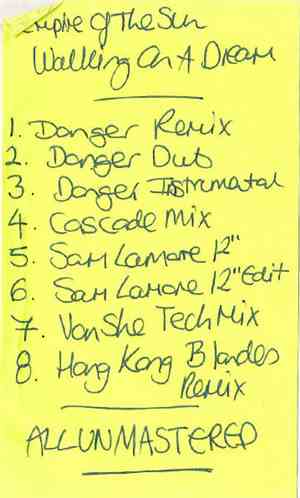 Empire Of The Sun
Walking On A Dream
1. Danger Remix
2. Danger Dub
3. Danger Instrumatal
4. Cascade Mix
5. Sam Lamore 12"
6. Sam Lamore 12" Edit
7. Van She Tech Mix
8. Hong Kong Blondes
Remix
ALL UNMASTERED